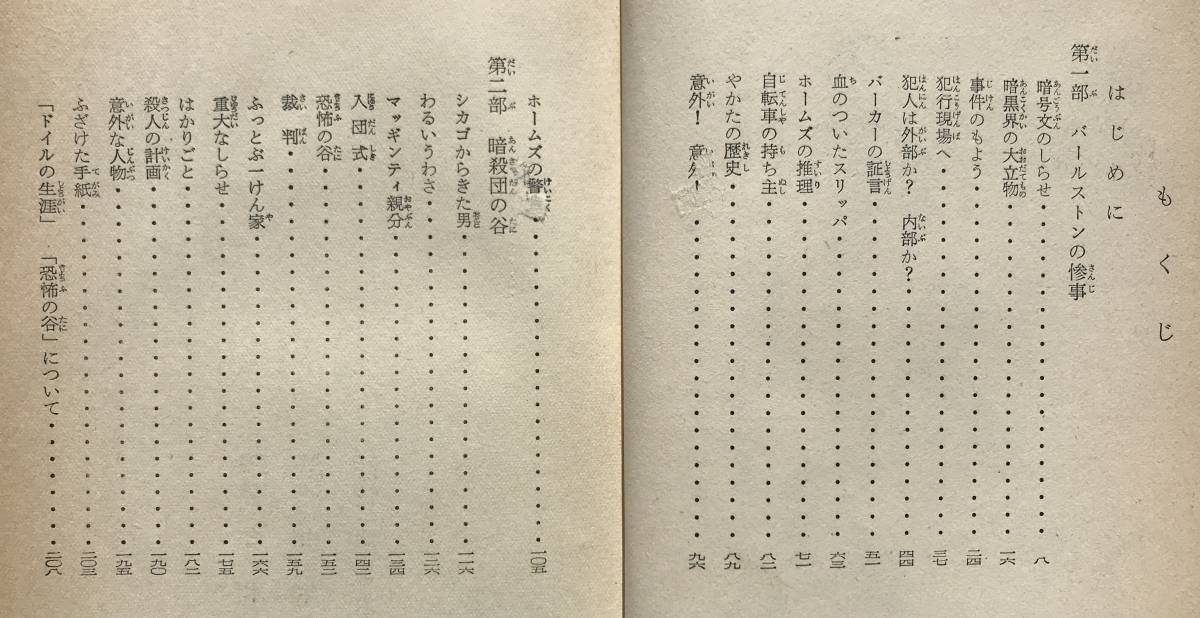 もくじ
はじめに
第一部　バールストンの惨事
暗号文のしらせ・・・・・・・・・・八
暗黒界の大立物・・・・・・・・・・一六
事件のもよう・・・・・・・・・・二四
犯行現場へ・・・・・・・・・・三七
犯人は外部か？　内部か？・・・・・・・・・・四四
バーカーの証言・・・・・・・・・・五一
血のついたスリッパ・・・・・・・・・・六三
ホームズの推理・・・・・・・・・・七一
自転車の持ち主・・・・・・・・・・八二
やかたの歴史・・・・・・・・・・八九
意外！　意外！・・・・・・・・・・九六
ホームズの警・・・・・・・・・・一〇五
第二部　暗殺団の谷
シカゴからきた男・・・・・・・・・・一一六
わるいうわさ・・・・・・・・・・一二六
マッギンティ親分・・・・・・・・・・一三四
入団式・・・・・・・・・・一四二
恐怖の谷・・・・・・・・・・一五二
裁判・・・・・・・・・・一五九
ふっとぶ一けん家・・・・・・・・・・一六六
重大なしらせ・・・・・・・・・・一七五
はかりごと・・・・・・・・・・一八二
殺人の計画・・・・・・・・・・一九〇
意外な人物・・・・・・・・・・一九五
ふざけた手紙・・・・・・・・・・二〇三
「ドイルの生涯」　「恐怖の谷」について・・・・・・・・・・二〇八